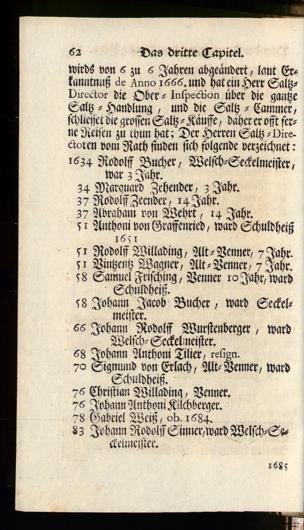 62 Das dritte Capitel.
wirds von 6 zu 6 Jahren abgeändert, laut Er-
kanntnuß de Anno 1666. und hat ein Herr Saltz-
Director die Ober-Inspection über die gantze
Saltz-Handlung, und die Saltz-Cammer,
schliesset die grossen Saltz-Käuffe, daher er offt fer-
ne Reisen zu thun hat; Der Herren Saltz-Dire-
ctoren vom Rath finden sich folgende verzeichnet:
1634 Rodolff Bucher, Welsch-Seckelmeister,
war 3 Jahr.
34 Marquard Zehender, 3 Jahr.
37 Rodolff Zeender, 14 Jahr.
37 Abraham von Wehrt, 14 Jahr.
51 Anthoni von Graffenried, ward Schuldheiß
1651
51 Rodolff Willading, Alt-Venner, 7 Jahr.
51 Vintzentz Wagner, Alt-Venner, 7 Jahr.
58 Samuel Frisching, Venner 10 Jahr, ward
Schuldheiß.
58 Johann Jacob Bucher, ward Seckel-
meister.
66 Johann Rodolff Wurstenberger, ward
Welsch-Seckelmeister.
68 Johann Anthoni Tilier, resign.
70 Sigmund von Erlach, Alt-Venner, ward
Schuldheiß.
76 Christian Willading, Venner.
76 Johann Anthoni Kilchberger.
78 Gabriel Weiß, ob. 1684.
83 Johann Rodolff Sinner, ward Welsch-Se-
ckelmeister.
1685